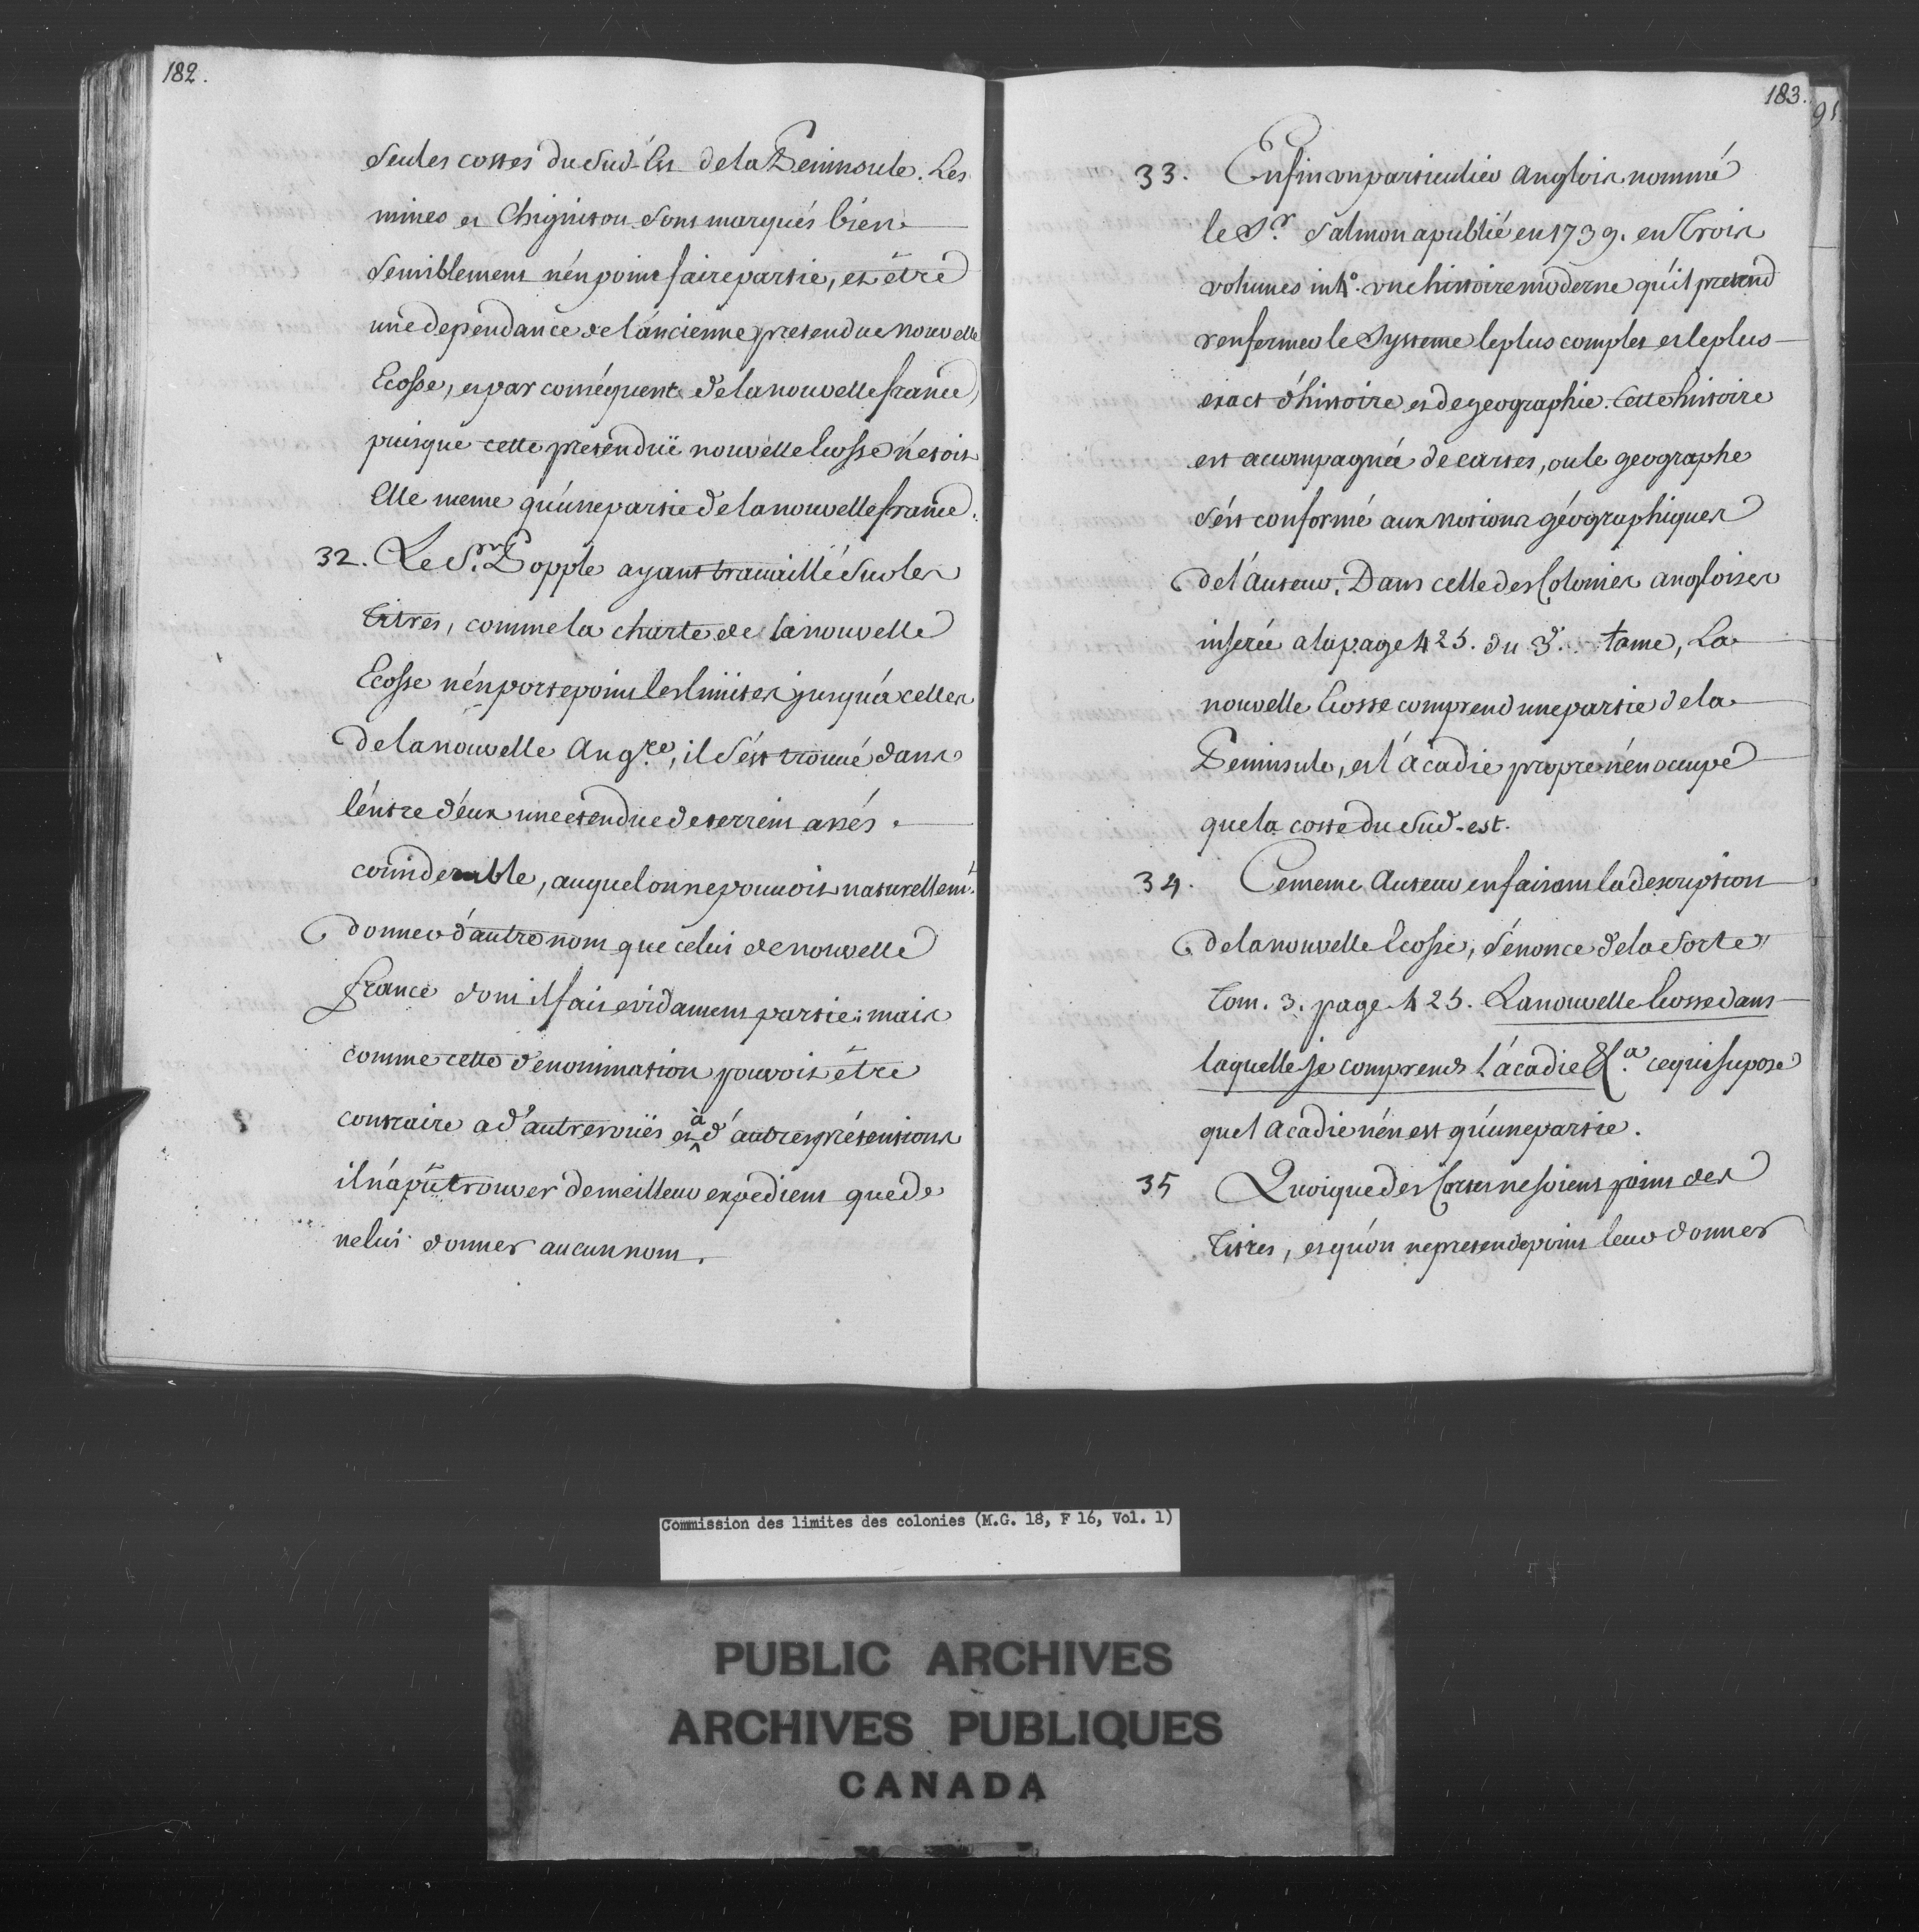 182.
seules costes du sud-Est de la Peninsule. Les
mines et Chignitou sont marqués bien
sensiblement n'én point faire partie, et être
une dépendance de l'áncienne pretendue nouvelle
Ecosse, et par conséquent de la nouvelle france,
puisque cette pretendüe nouvelle Ecosse n'étoit
Elle meme qu'úne partie de la nouvelle france.
32. Le S.r Popple ayant travaillé sur les
titres, comme la charte de la nouvelle
Ecosse n'én porte point les limites jusqu'à celles
de la nouvelle Ang.re, il s'ést trouvé dans
l'éntre d'éux une etendue de terrein assés
considerable, auquel on ne pouvoit naturellem.t
donner d'áutre nom que celui de nouvelle
france dont il fait evidament partie; mais
comme cette dénomination pouvoit être
contraire a d'áutres vües et à d'áutres prétensions
il n'á pû trouver de meilleur expedient que de
ne lui donner aucun nom.
183.
91
33. Enfin un particulier Anglois nommé
le S.r Salmon a publié en 1739. en trois
volumes in 4.o une histoire moderne qu'íl pretend
renfermer le Systeme le plus complet et le plus
exact d'histoire et de geographie. Cette histoire
est accompagnée de cartes, ou le geographe
s'ést conformé aux notions géographiques
de l'Auteur. Dans celle des Colonies angloises
inserée a la page 425. du 3.. tome, La
nouvelle Ecosse comprend une partie de la
Peninsule, et l'ácadie propre n'én occupe
que la coste du sud-est.
34. Ce meme Auteur en faisant la description
de la nouvelle Ecosse, s'énonce de la sorte
Tom. 3. page 425. La nouvelle Ecosse dans
laquelle je comprends l'ácadie &c.a ce qui supose
que l'Acadie n'én est qu'úne partie.
35 Quoique des Cartes ne soient point des
titres, et qu'ón ne pretende point leur donner
Commission des limites des colonies (M.G. 18, F 16, Vol. 1)
PUBLIC ARCHIVES
ARCHIVES PUBLIQUES
CANADA